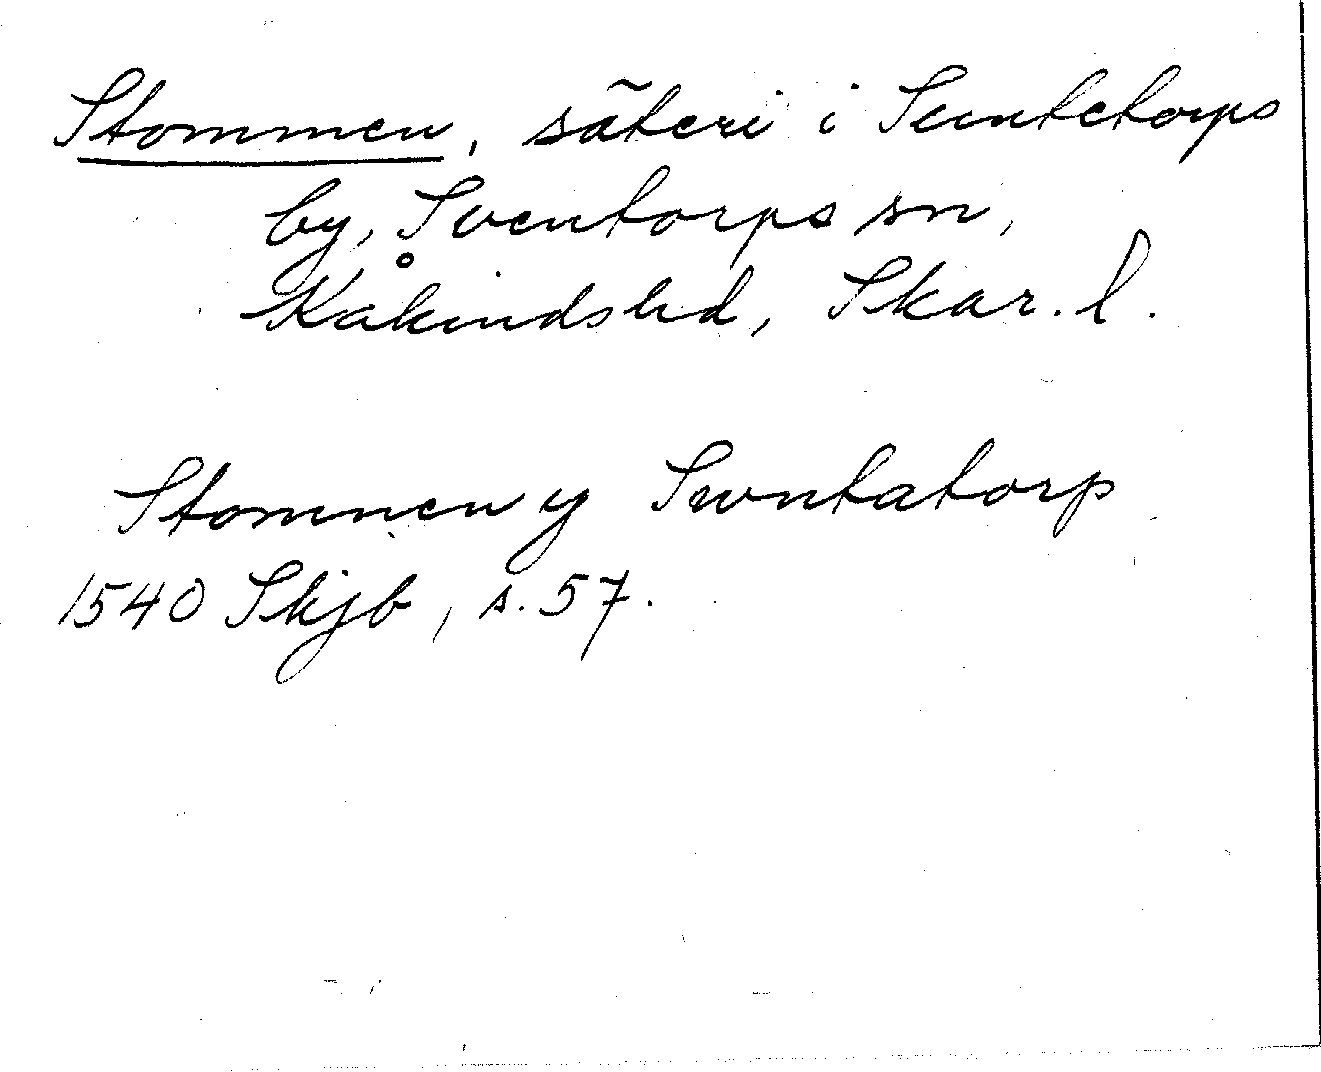 Stommen, säteri i Suntetorps
by, Sventorps sn,
Kåkindshd, Skar. l.
Stommen y Swntatorp
1540 Skjb, s. 57.